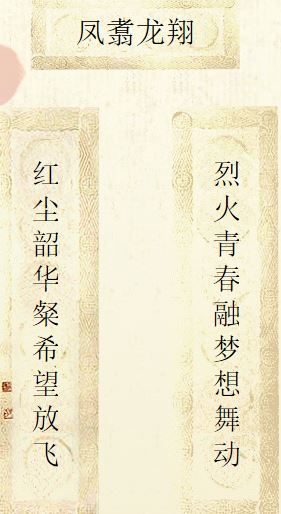 凤翥龙翔
烈火青春融梦想舞动
红尘韶华粲希望放飞